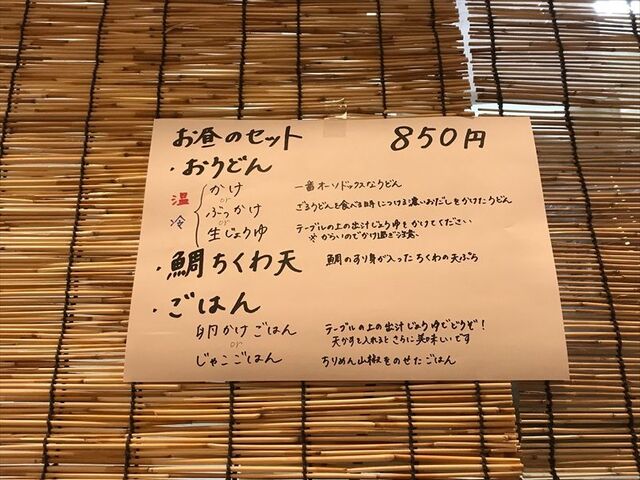 お昼のセット 850円
・おうどん
温 冷
かけ 一番オーソドックスなうどん
or
ぶっかけ ざるうどんを食べる時につける濃いおだしをかけたうどん
or
生じょうゆ テーブルの上の出汁じょうゆをかけてください
※からいのでかけ過ぎ注意
・鯛ちくわ天 鯛のすり身が入ったちくわの天ぷら
・ごはん
卵かけごはん テーブルの上の出汁じょうゆでどうぞ!
天かすを入れるとさらに美味いです
or
じゃこごはん ちりめん山椒をのせたごはん